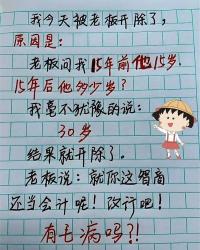 我今天被老板开除了,
原因是:
老板问我15年前他15岁.
15年后他多少岁?
我毫不犹豫的说:
30岁
结果就开除了。
老板说:就你这智商
还当会计呢!改行吧!
有毛病吗?!